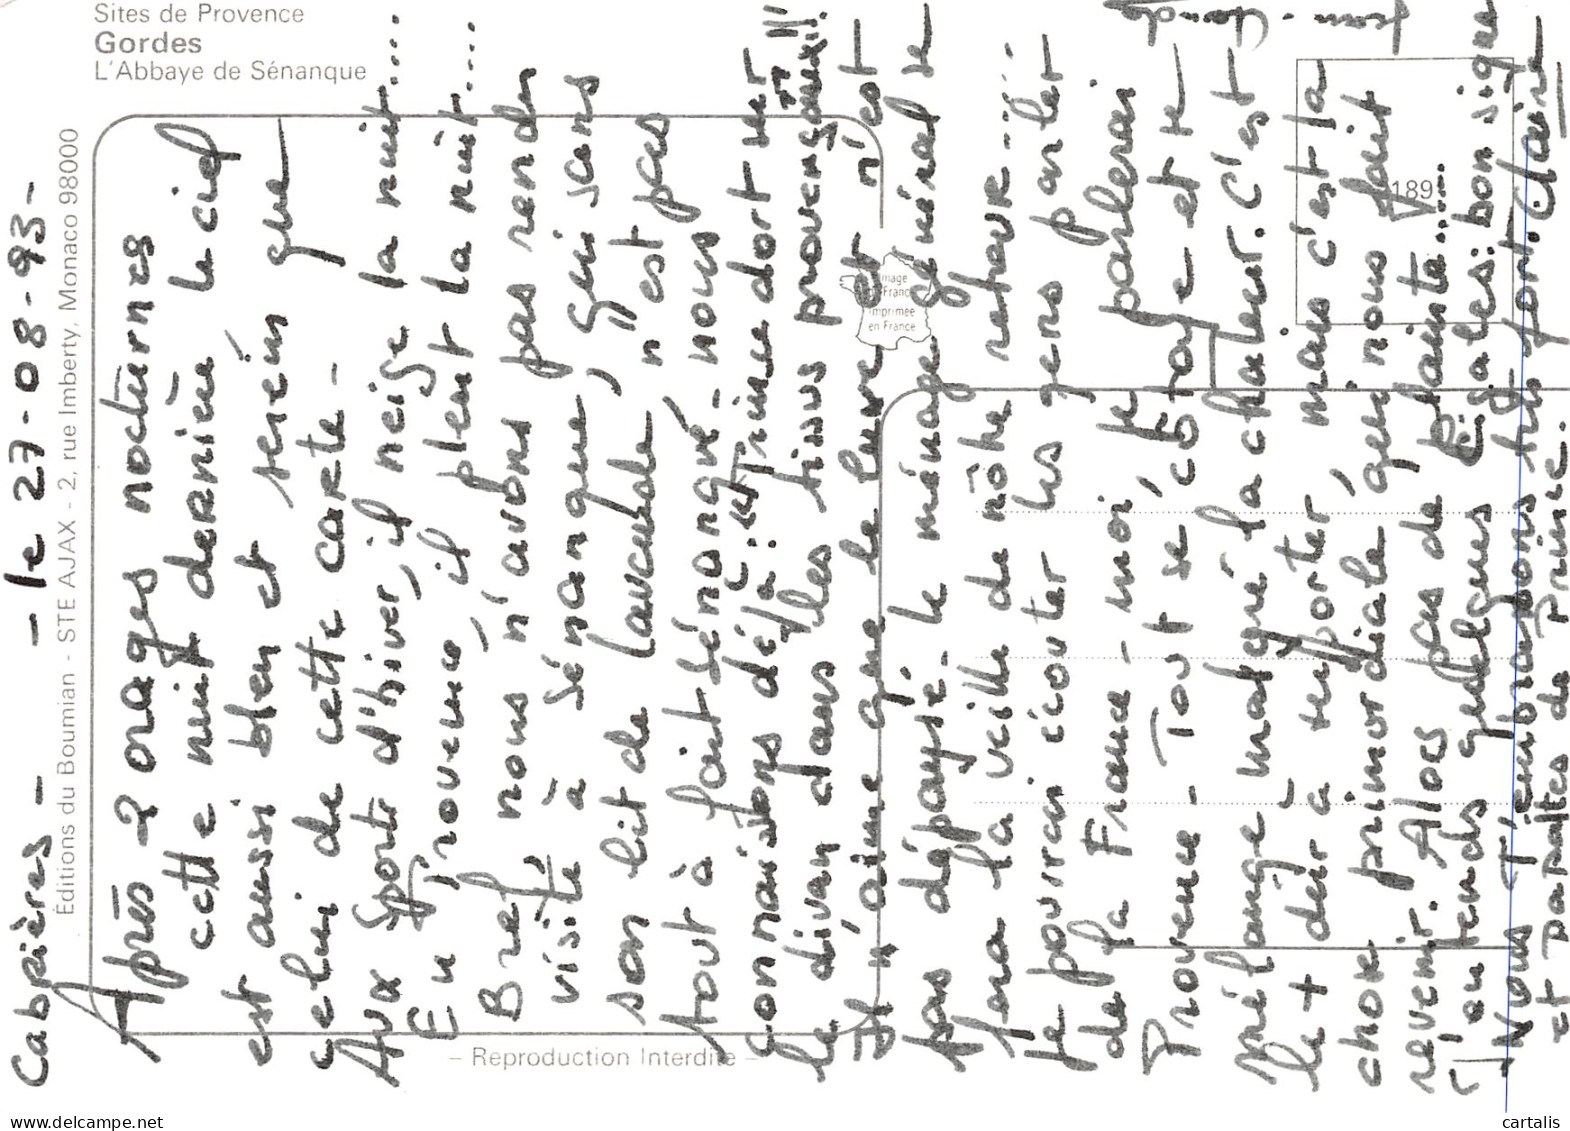 Sites de Provence
Gordes
L'Abbaye de Sénanque
Éditions du Boumian - STE AJAX - 2, rue Imberty, Monaco 98000
– Reproduction Interdite –
Image de France
imprimée
en France
189
Cabrières - - le 27-08-93-
Après 2 orages nocturnes
cette nuit dernière le ciel
est aussi bleu et serein que
celui de cette carte -
Aux sports d'hiver, il neige la nuit....
En Provence, il pleut la nuit....
Bref nous n'avons pas rendu
visite à Sénanque, qui sans
son lit de lavande, n'est pas
tout à fait Sénanque - nous
connaissons déjà: Prince dort sur
le divan dans "les tissus provençaux"!!
Il n'aime que le luxe et n'est
pas dépaysé. Le ménage général se
fera la veille de nôtre retour.....
Je pourrai écouter les gens parler
de la France - moi, je parlerai
Provence - Tout se côtoye et se
mélange malgré la chaleur. C'est
le + dur à supporter, mais c'est la
chose primordiale qui nous fait
revenir. Alors pas de plainte.....
J'entends quelques cigales: bon signe
Nous t'embrassons très fort. Claire
et papattes de Prince.
Jean